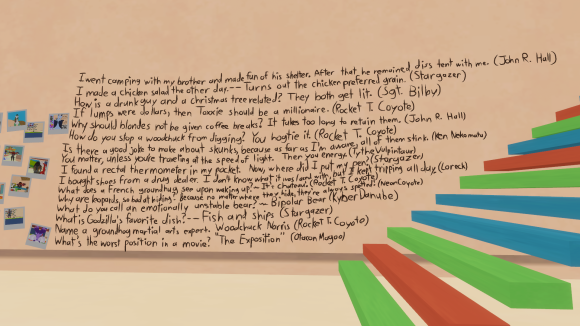 I went camping with my brother and made fun of his shelter. After that he remained diss tent with me. (John R. Hall)
I made a chicken salad the other day.-- Turns out the chicken preferred grain. (Stargazer)
How is a drunk guy and a christmas tree related? They both get lit. (Sgt. Bilby)
If lumps were dollars then Toxxie should be a millionaire. (Rocket T. Coyote)
Why should blondes not be given coffee breaks? It takes too long to retain them. (John R. Hall)
How do you stop a woodchuck from digging? You hogtie it. (Rocket T. Coyote)
Is there a good joke to make about skunks, because as far as I'm aware, all of them stink. (Ken Nekomata)
You matter, unless you're traveling at the speed of light. Then you energy. (TytheVulpintaur)
I found a rectal thermometer in my pocket. Now, where did I put my pen? (Stargazer)
I bought shoes from a drug dealer. I don't know what it was laced with, but I kept tripping all day. (Lorech)
What does a French groundhog see upon waking up? -- It's Chateau. (Rocket T. Coyote)
Why are leopards so bad at hiding? Because no matter where they hide, they're always spotted. (NeonCoyote)
What do you call an emotionally unstable bear? ~ Bipolar Bear (KyberDanube)
What is Godzilla's favorite dish? -- Fish and Ships (Stargazer)
Name a groundhog martial arts expert. Woodchuck Norris (Rocket T. Coyote)
What's the worst position in a movie? "The Exposition" (Otacon Mugoo)